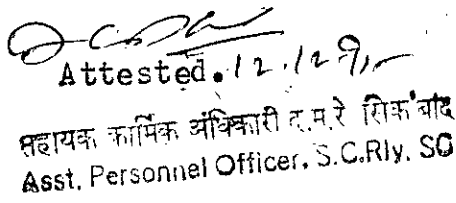 Attested. 12.12.91
सहायक कार्मिक अधिकारी द.म.रे सिकंबाद
Asst. Personnel Officer, S.C.Rly. SC